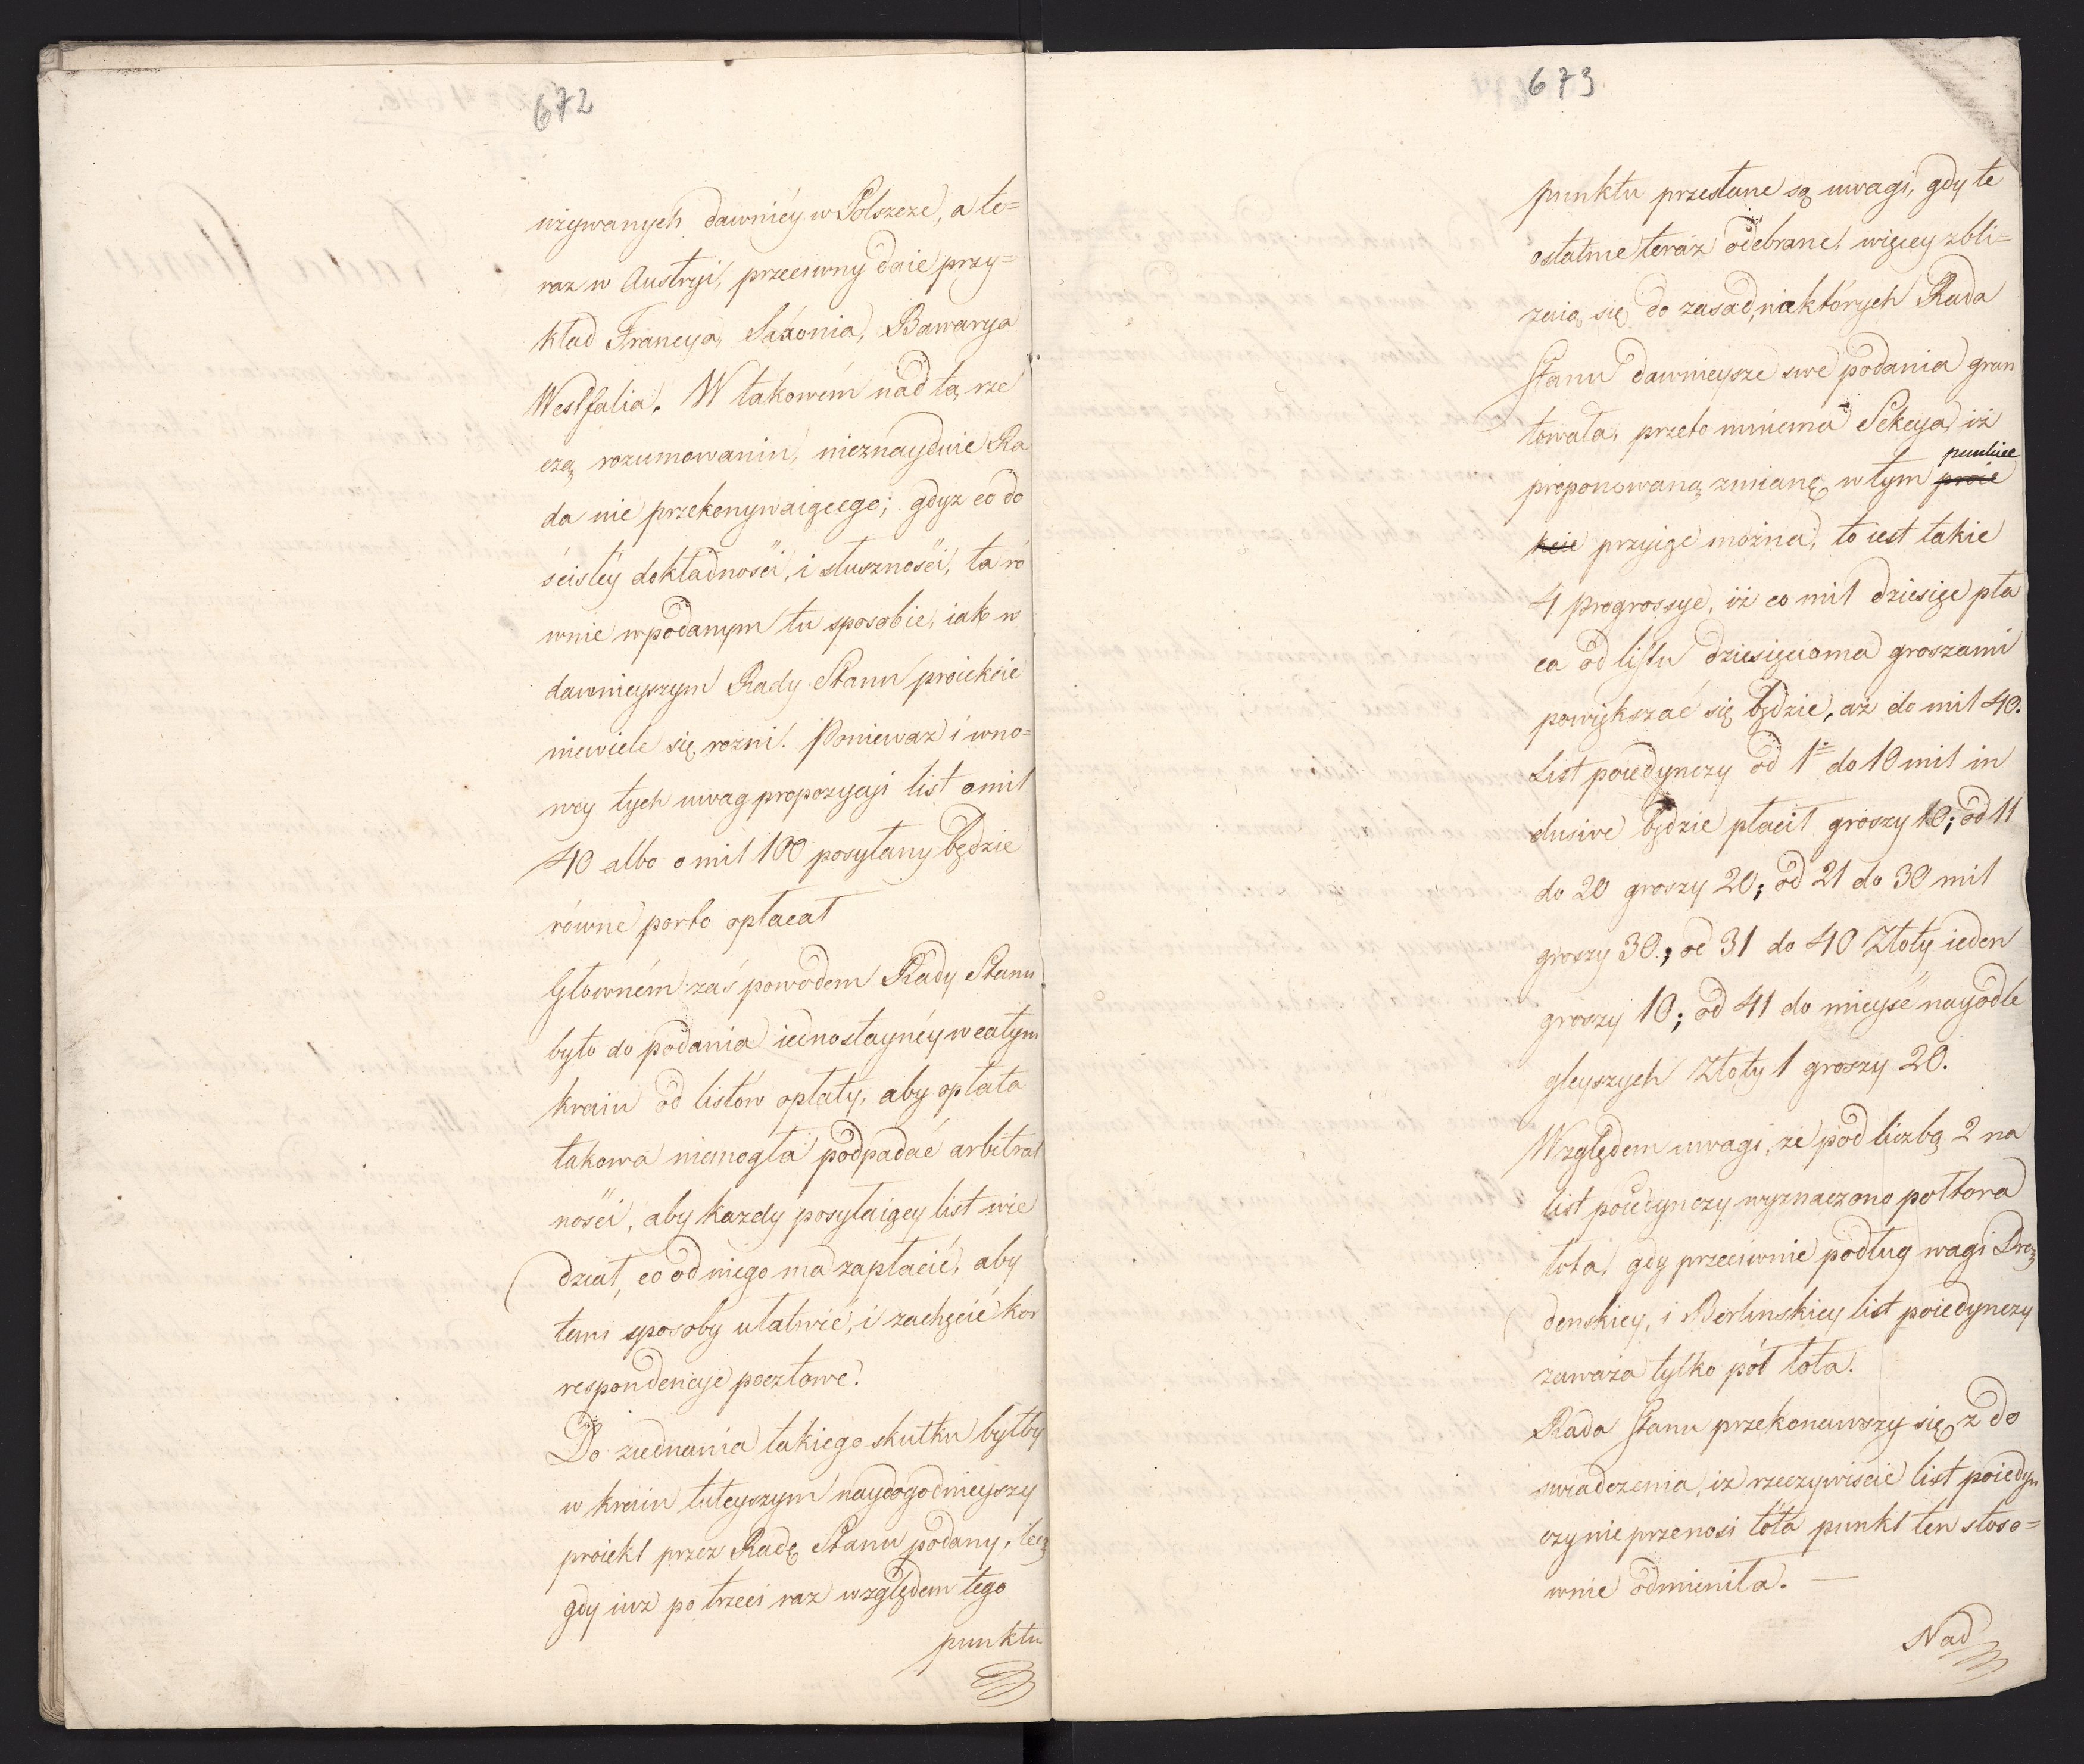 672
używanych dawniéy w Polszcze, a te=
raz w Austryi, przeciwny daie przy=
kład Francya, Saxonia, Bawarya
Westfalia. W takowém nad tą rze
czą rozumowaniu, nieznayduie Ra
da nic przekonywaiącego; gdyż co do
ścisłéy dokładności, i słuszności, ta ró
wnie w podanym tu sposobie, iak w
dawnieyszym Rady Stanu proiekcie
niewiele się rożni. Ponieważ i w no=
wéy tych uwag propozycyi list o mil
40 albo o mil 100 posyłany będzie
równe porto opłacał
Głowném zaś powodem Rady Stanu
było do podania iednostaynéy w całym
kraiu od listów opłaty, aby opłata
takowa niemogła podpadać arbitral
ności, aby każdy posyłaiący list wie
dział, co od niego ma zapłacić, aby
temi sposoby ułatwić, i zachęcić kor
respondencye pocztowe.
Do ziednania takiego skutku byłby
w kraiu tuteyszym naydogodnieyszy
proiekt przez Radę Stanu podany, lecz
gdy iuż po trzeci raz względem tego
punktu
673
punktu przesłane są uwagi, gdy te
ostatnie teraz odebrane, więcey zbli=
żaią się do zasad, na których Rada
Stanu dawnieysze swe podania grun
towała, przeto mniema Sekcya, iż
proponowaną zmianę w tym proie punkcie
kcie przyiąć można, to iest takie
4 progressye, iż co mil dziesięć pła
ca od listu dziesięcioma groszami
powiększać się będzie, aż do mil 40.
List poiedynczy od 1 do 10 mil in
clusive będzie płacił groszy 10; od 11
do 20 groszy 20; od 21 do 30 mil
groszy 30; od 31 do 40 Złoty ieden
groszy 10; od 41 do mieysc nayodle
gleyszych Złoty 1 groszy 20.
Względem uwagi, że pod liczbą 2 na
list poiedynczy wyznaczono półtora
łóta, gdy przeciwnie podług wagi Drez
denskiey, i Berlinskiey list poiedynczy
zaważa tylko pół łóta.
Rada Stanu przekonawszy się z do
świadczenia, iż rzeczywiście list poiedyn
czy nie przenosi łóta punkt ten stoso=
wnie odmieniła. —
Nad